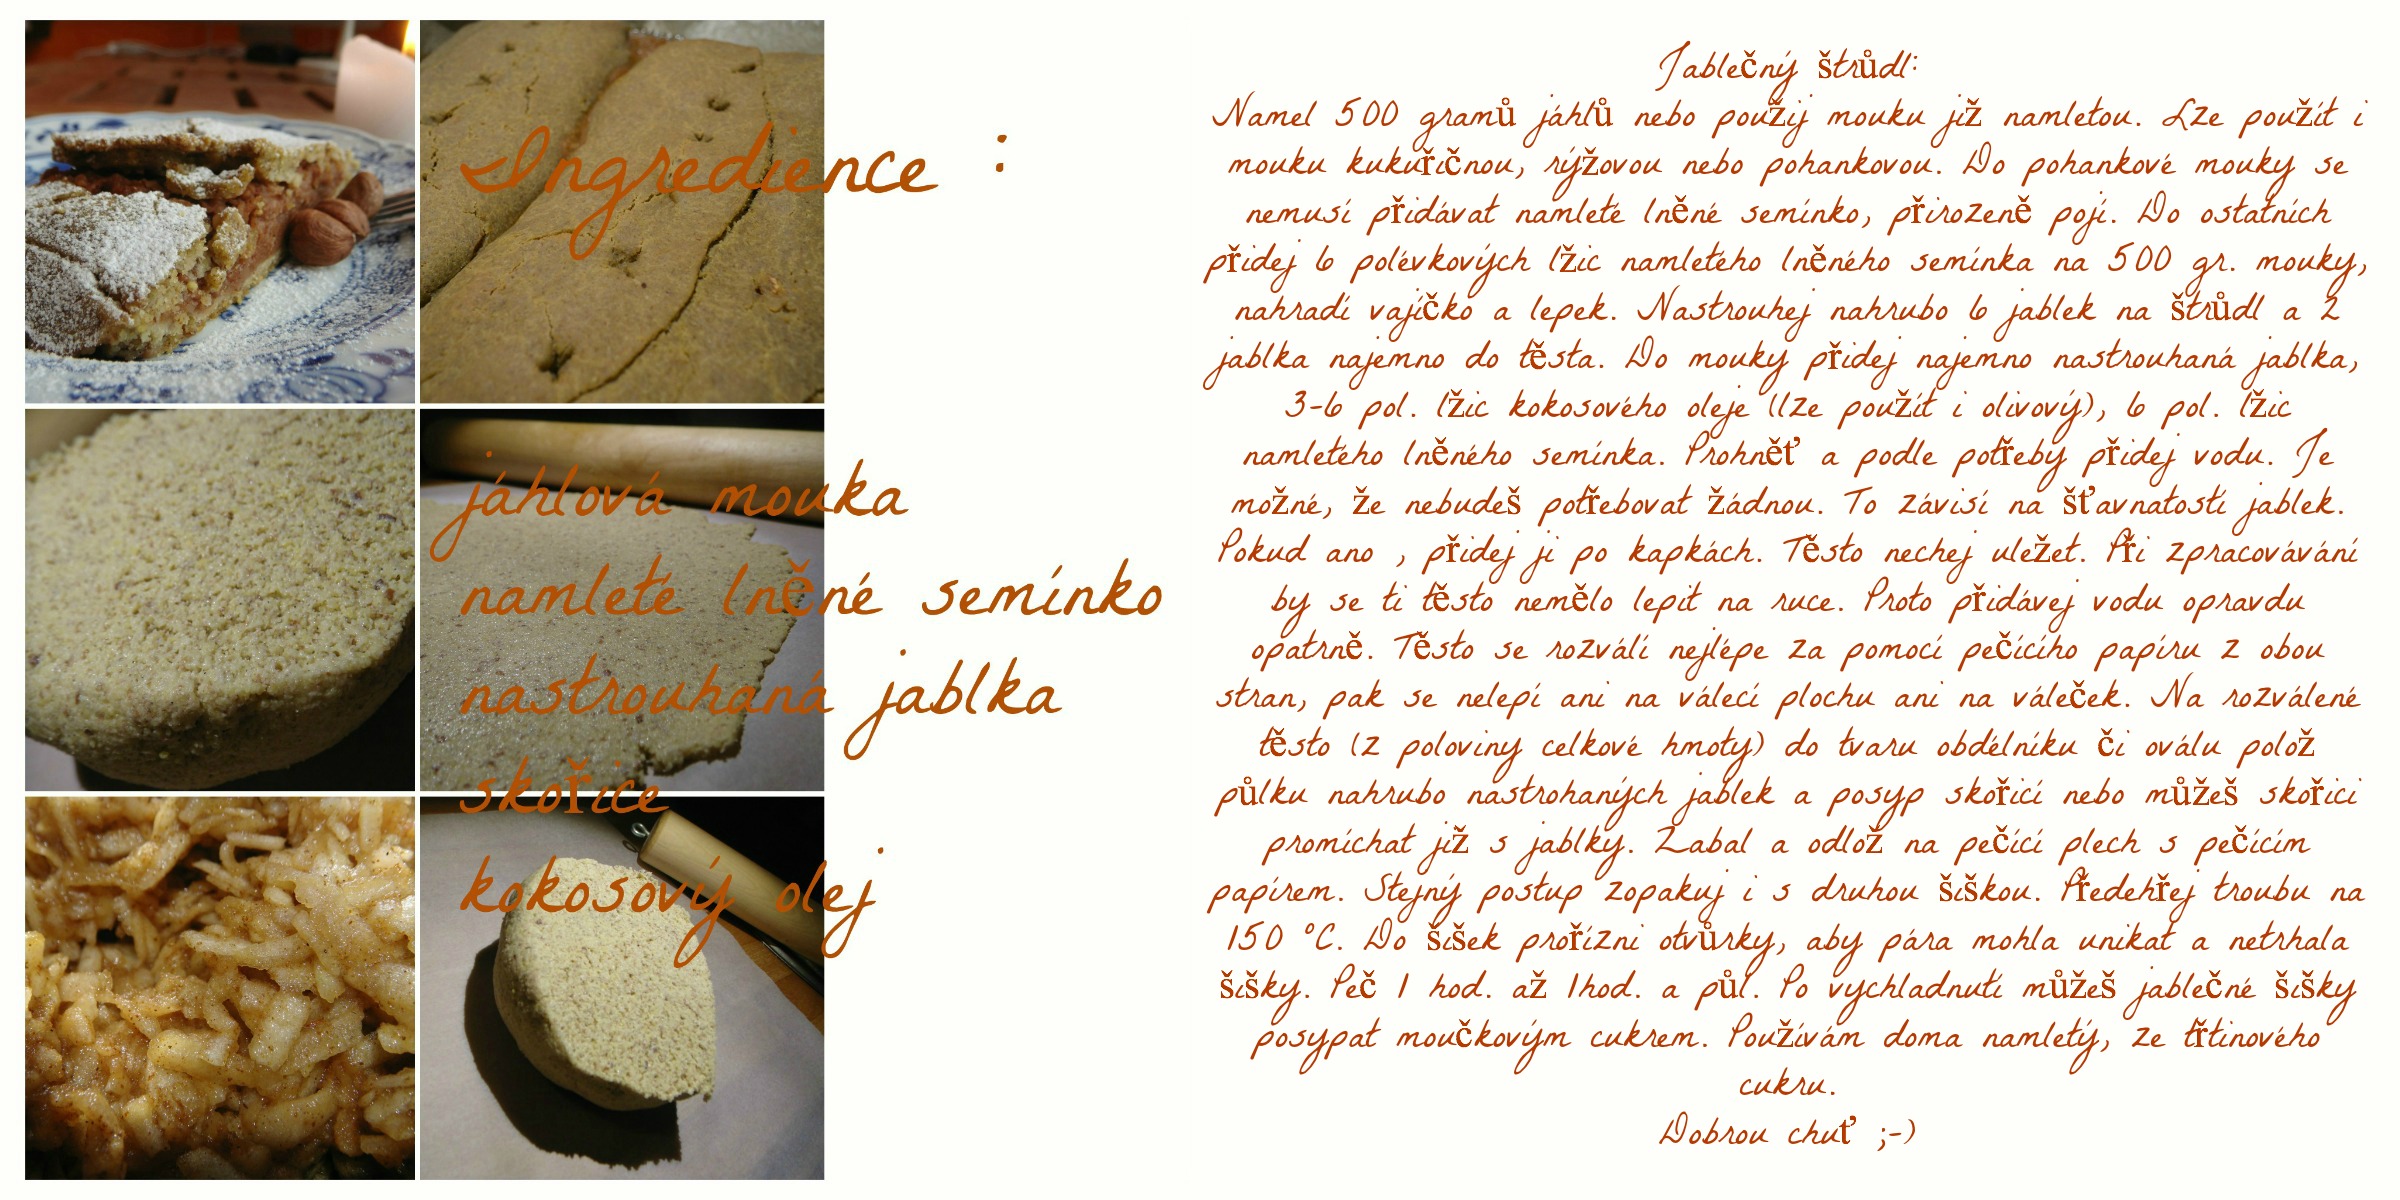 Ingredience :
jáhlová mouka
namleté lněné semínko
nastrouhaná jablka
skořice
kokosový olej
Jablečný štrůdl:
Namel 500 gramů jáhlů nebo použij mouku již namletou. Lze použít i
mouku kukuřičnou, rýžovou nebo pohankovou. Do pohankové mouky se
nemusí přidávat namleté lněné semínko, přirozeně pojí. Do ostatních
přidej 6 polévkových lžic namletého lněného semínka na 500 gr. mouky,
nahradí vajíčko a lepek. Nastrouhej nahrubo 6 jablek na štrůdl a 2
jablka najemno do těsta. Do mouky přidej najemno nastrouhaná jablka,
3-6 pol. lžic kokosového oleje (lze použít i olivový), 6 pol. lžic
namletého lněného semínka. Prohněť a podle potřeby přidej vodu. Je
možné, že nebudeš potřebovat žádnou. To závisí na šťavnatosti jablek.
Pokud ano , přidej ji po kapkách. Těsto nechej uležet. Při zpracovávání
by se ti těsto nemělo lepit na ruce. Proto přidávej vodu opravdu
opatrně. Těsto se rozválí nejlépe za pomocí pečícího papíru z obou
stran, pak se nelepí ani na válecí plochu ani na váleček. Na rozválené
těsto (z poloviny celkové hmoty) do tvaru obdélníku či oválu polož
půlku nahrubo nastrohaných jablek a posyp skořicí nebo můžeš skořici
promíchat již s jablky. Zabal a odlož na pečící plech s pečícím
papírem. Stejný postup zopakuj i s druhou šiškou. Předehřej troubu na
150 °C. Do šišek prořízni otvůrky, aby pára mohla unikat a netrhala
šišky. Peč 1 hod. až 1hod. a půl. Po vychladnutí můžeš jablečné šišky
posypat moučkovým cukrem. Používám doma namletý, ze třtinového
cukru.
Dobrou chuť ;-)